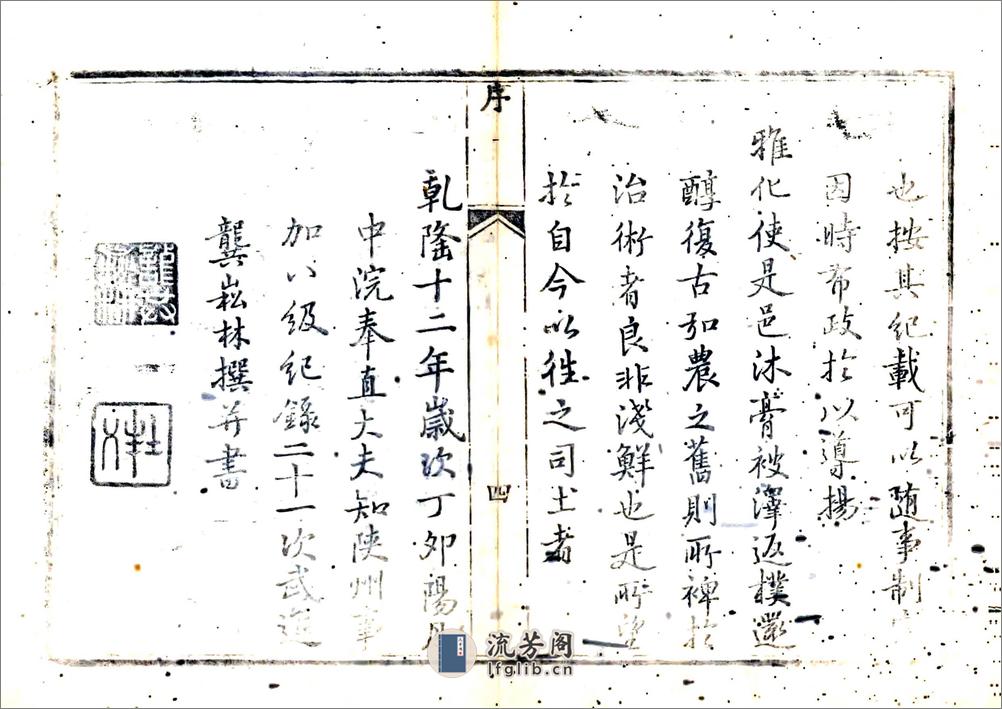 也按其紀載可以随事制
因時布政於以導揚
雅化使是邑沐膏被澤返樸還
醇復古弘農之舊則所裨於
治術者良非淺鮮也是所望
扵自今以往之司土者
序
四
乾隆十二年歲次丁卯陽月
中浣奉直大夫知陝州事
加八級紀錄二十一次武進
龔崧林撰并書
流芳阁
lfglib.cn